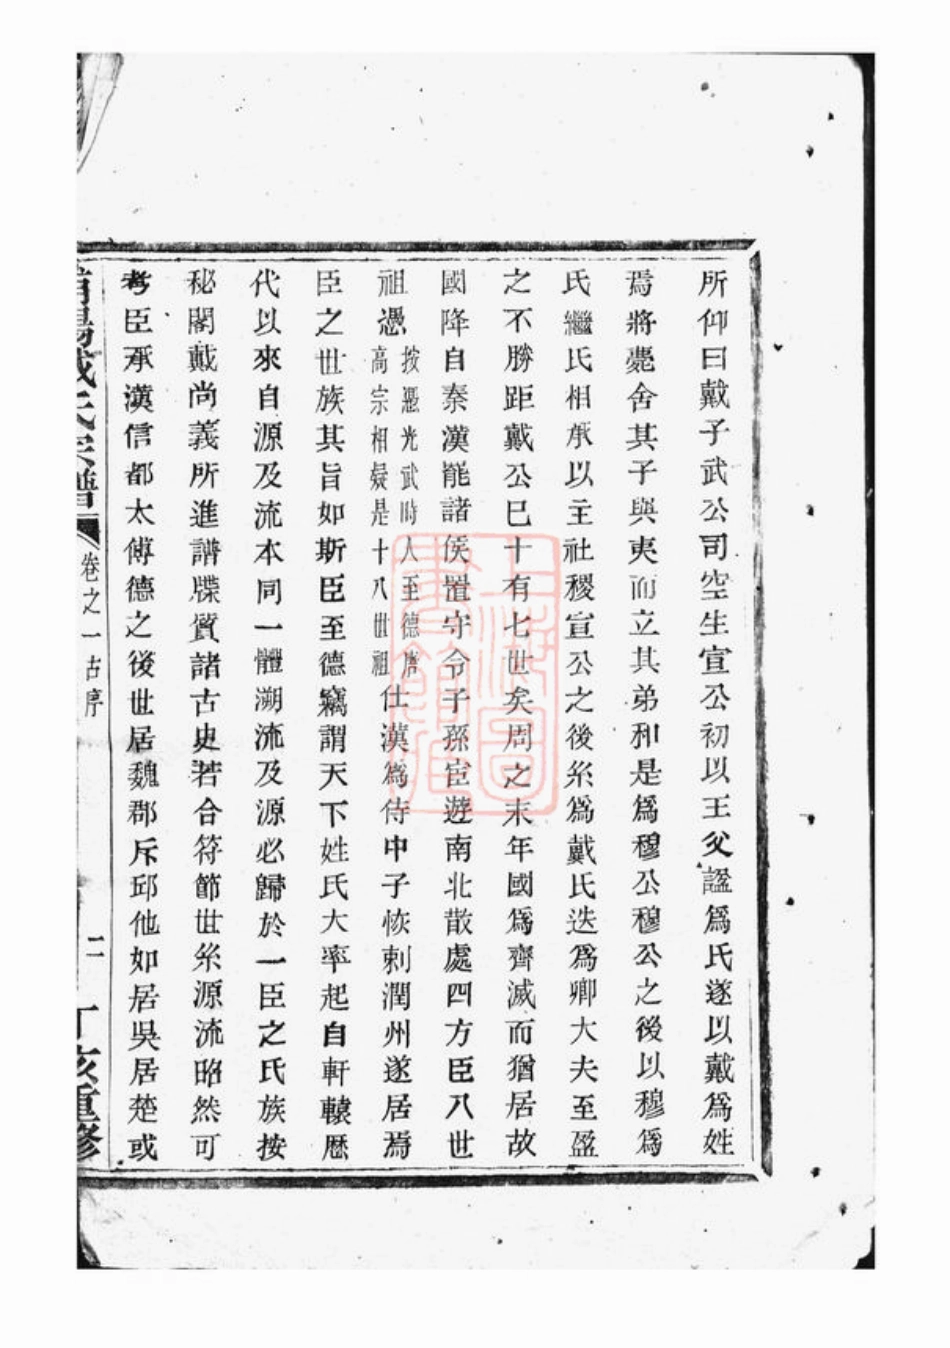 所仰曰戴子武公司空生宣公初以王父諡爲氏遂以戴爲姓
焉將薨舍其子與夷而立其弟和是爲穆公穆公之後以穆爲
氏繼氏相承以主社稷宣公之後系爲戴氏迭爲卿大夫至盈
之不勝距戴公巳十有七世矣周之末年國爲齊滅而猶居故
國降自秦漢罷諸侯置守令子孫宦遊南北散處四方臣八世
祖憑
按憑光武時人至德唐
高宗相疑是十八世祖
仕漢爲侍中子恢剌潤州遂居焉
臣之世族其旨如斯臣至德竊謂天下姓氏大率起自軒轅歷
代以來自源及流本同一體溯流及源必歸於一臣之氏族按
秘閣戴尚義所進譜牒質諸古史若合符節世系源流昭然可
考臣承漢信都太傅德之後世居魏郡斥邱他如居吳居楚或
戴氏宗譜
卷之一古序
二
丁亥重修
上海圖書館藏